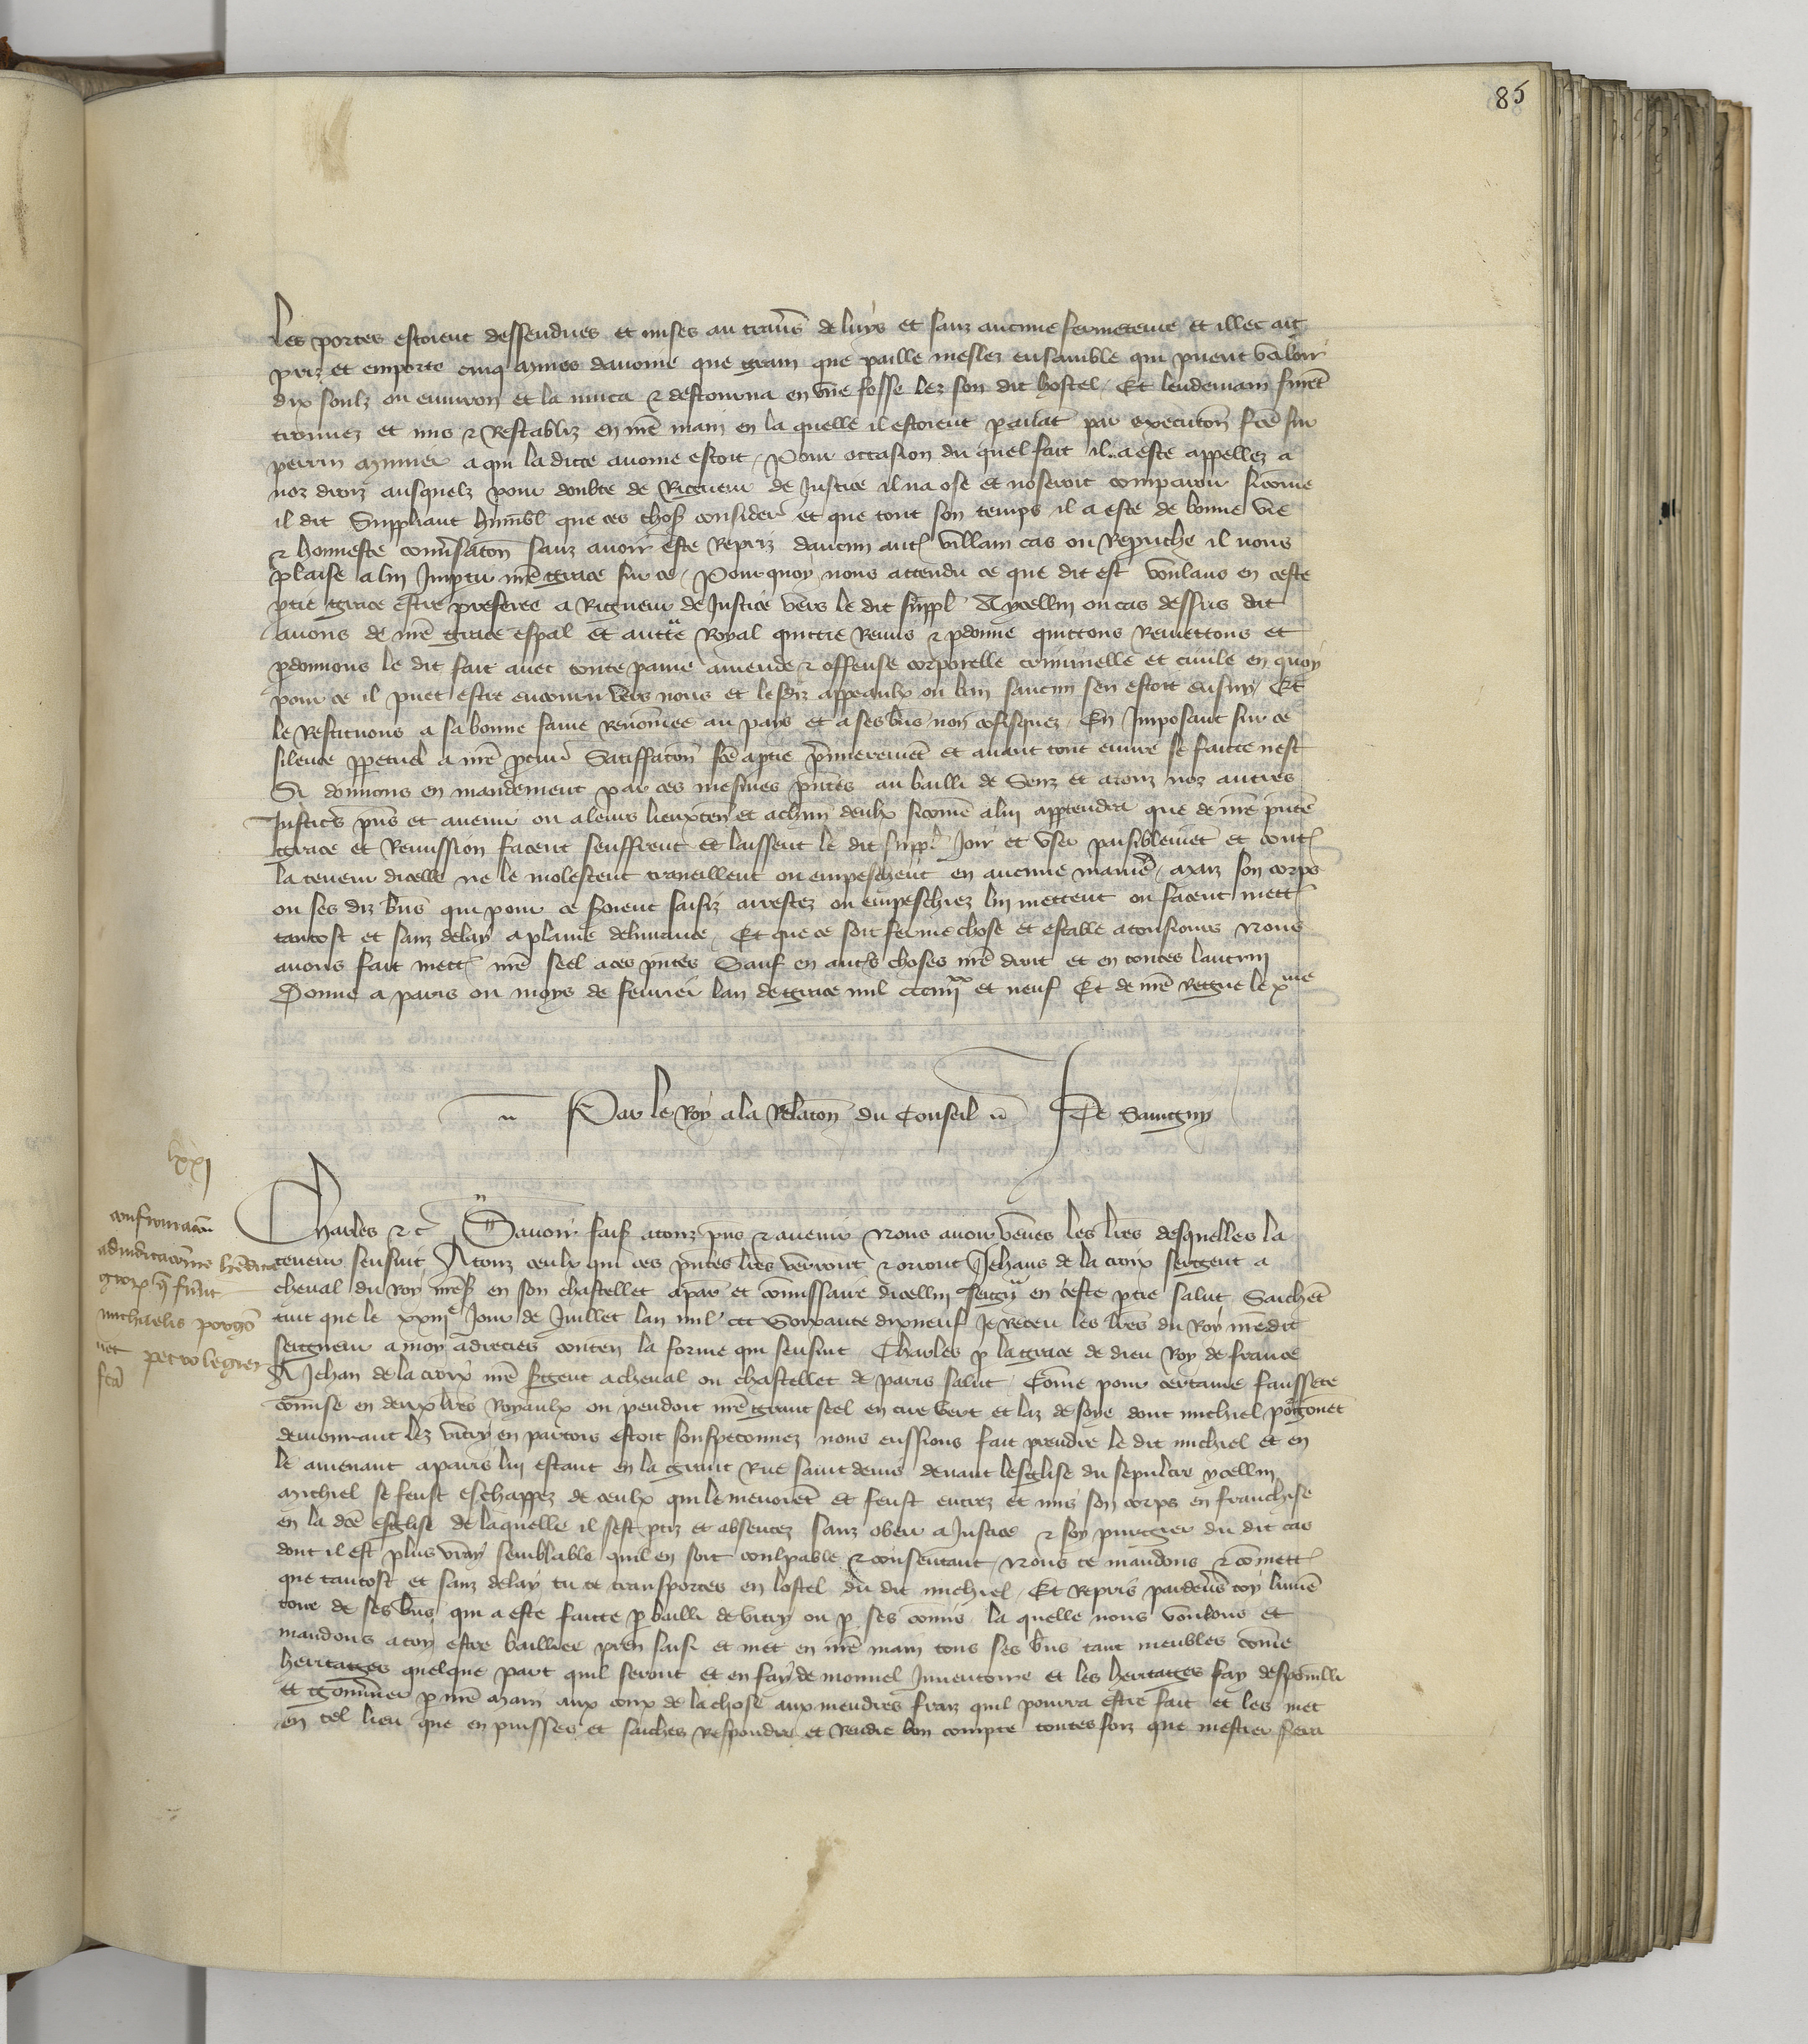 85
les portes estoient dessendues et mises au trav̄s de luys et sanz aucune fermeteure et illec ait
pris et emporte cinq mines davoine que grain que paille meslez ensamble qui puent valoir
dix soulz ou environ et la muca & destourna en vne fosse lez son dit hostel / Et lendemain furēt
trouuez et mis & Restabliz en nr̄e main en la quelle il estoient par execucon̄ fc̄e sur
perrin a qui la dicte avoine estoit / Pour occasion du quel fait il a este appellez a
noz droiz ausquelz pour doubte de Rigueur de Justice il na ose et noseroit comparoir sicom̄e
il dit Suppliant humbl̄ que ces chos̄ consider̄ et que tout son temps il a este de bonne vie
& honneste conv̄sacon̄ sanz avoir este Repris daucun aut̄ villain cas ou Reprouche il nous
plaise a lui Impartir nr̄e grace sur ce / Pour quoy nous attendu ce que dit est voulans en ceste
p̄tie grace estre preferee a Rigueur de Justice vers le dit suppl̄ A ycellui ou cas dessus dit
avons de nr̄e grace esp̄al et auct̄e Royal quictie Remis & p̄donne quictons Remettons et
p̄donnons le dit fait avec toute paine amende & offense corporelle criminelle et civile en quoy
pour ce il puet estre encouru vers nous et lesdiz appeaulx ou ban saucun sen estoit ensuy / Et
le Restituons a sa bonne fame Renom̄ee au pays et a ses bn̄s non cōfisquez / En Imposant sur ce
silence pp̄etuel a nr̄e p̄cur̄ Satiffacon̄ fc̄e a p̄tie p̄mierem̄et et avant tout euure se faicte nest
Si donnons en mandement par ces mesmes pn̄tes au bailli de Senz et a touz noz autres
Justic̄s pn̄s et avenir ou a leurs lieuxten̄ et a ch̄un deulx sicom̄e a lui app̄tendra que de nr̄e pn̄te
grace et Remission facent seuffrent et laissent le dit supp̄l Joir et vser paisiblem̄et et cont̄
la teneur dicelle ne le molestent travaillent ou empeschent en aucune manie͂ / Maiz son corps
ou ses diz bn̄s qui pour ce soient saisiz arrestez ou empeschiez lui mettent ou facent mett̄
tantost et sanz delay a plaine delivrance / Et que ce soit ferme chose et estable a tousiours Nous
avons fait mett̄ nr̄e seel a ces pn̄tes Sauf en autr̄s choses nr̄e droit et en toutes lautrui
Donne a paris ou moys de fevrier lan de grace mil ccc iiii xx et neuf Et de nr̄e Regne le xme
Par le Roy a la Relacon̄ du Conseil J De Sauigny
lxxj
confirmacio
adiudicacōnis
que fuerūt
michaelis porgo
net petro legier
fc̄a
Charles & c̄ Savoir fais̄ a touz pn̄s & avenir Nous avoir veues les lr̄es desquelles la
teneur sensuit A touz ceulx qui ces pn̄tes lr̄es verront & orront Jehans de la croix sergent a
cheval du Roy nr̄es̄ en son chastellet a par̄ et com̄issaire dicellui seign̄ en ceste p̄tie salut Saichēt
tuit que le xxiije Jour de Juillet lan mil ccc soixante dixneuf Je Receu les lr̄es du Roy nr̄edit
seigneur a moy adrecies conten̄ la forme qui sensuit Charles p̄ la grace de dieu Roy de france
A Jehan de la croix nr̄e s̄gent a cheval ou chastellet de paris salut Com̄e pour certaine faussete
com̄ise en deux lr̄es Royaulx ou pendoit nr̄e grant seel en cire vert et laz de soye dont michiel porgonet
demourant lez vitry en partois estoit souspeconnez nous eussions fait prendre le dit michiel et en
le amenant a paris lui estant en la grant Rue saint denis devant lesglise du sepulcre ycellui
michiel se feust eschappez de ceulx qui le menoiēt et feust entrez et mis son corps en franchise
en la dc̄e esglise de laquelle il sest p̄tiz et absentez sanz obeir a Justice & soy purgier du dit cas
dont il est plus vray semblable quil en soit coulpable & consentant / Nous te mandons & com̄ett̄
que tantost et sanz delay tu te transportes en lostel du dit michiel / Et Repris pardevers toy linuē
toire de ses bn̄s qui a este faicte p̄ bailli de vitry ou p̄ ses com̄is la quelle nous voulons et
mandons a toy estre baillier pren saisi et met en nr̄e main tous ses bn̄s tant meubles com̄e
heritages quelque part quil seront et en fay de nouuel Inventoire et les heritages fay despouillī
et gouv̄ner p̄ nr̄e main aux coux de la chose aux mendres fraiz quil pourra estre fait et les met
en tel lieu que en puisses et saiches Respondre et Rendre bon compte toutesfoiz que mestier sera